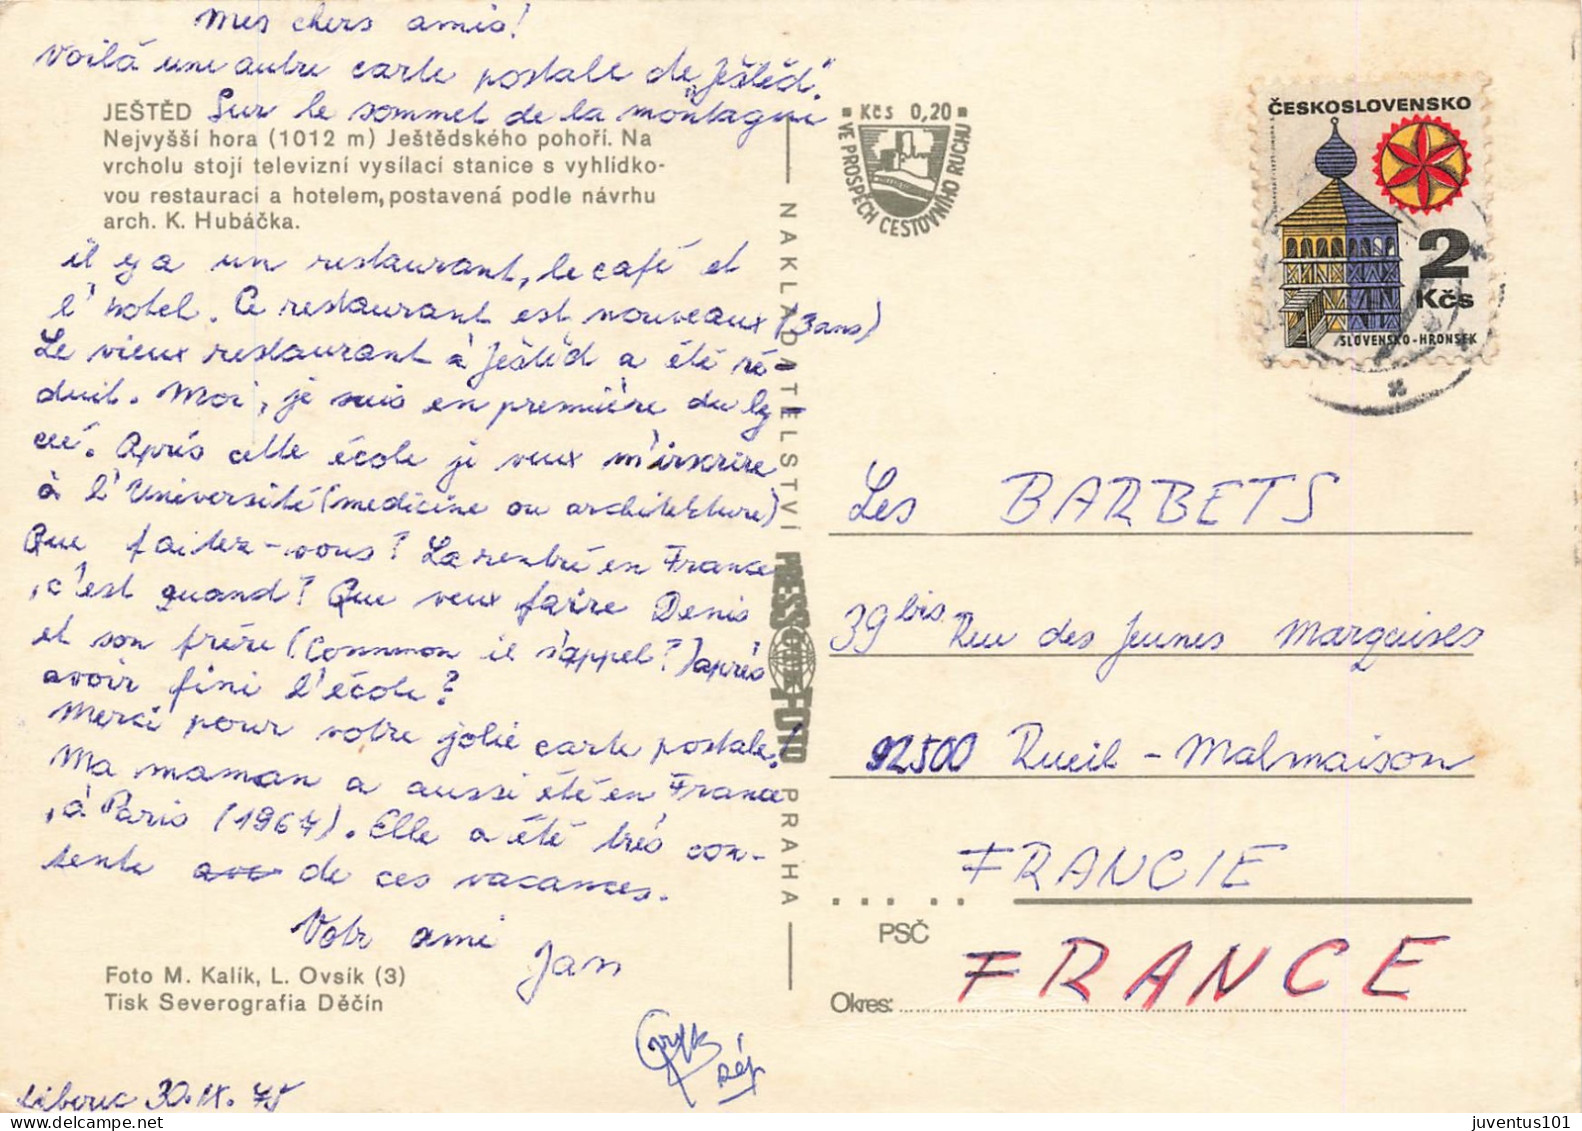 Mes chers amis!
Voilá une autre carte postale de "Ještěd".
Sur le sommet de la montagni
JEŠTĚD
Nejvyšší hora (1012 m) Ještědského pohoří. Na
vrcholu stojí televizní vysílací stanice s vyhlídko-
vou restaurací a hotelem, postavená podle návrhu
arch. K. Hubáčka.
il y a un restaurant, le café et
l'hotel. Ce restaurant est nouveaux (3 ans)
Le vieux restaurant à Ještěd a été ré-
duit. Moi, je suis en première du ly-
ceé. Aprés cette école je veux m'irscrire
à l'Université (medicine ou architekture)
Que faitez-vous? La rentré en France
, c'est quand? Que veux faire Denis
et son frére (Common il s'appel?) aprés
avoir fini l'école?
Merci pour votre jolie carte postale!
Ma maman a aussi été en France
, à Paris (1967). Elle a été trés con-
tente de ces vacances.
Votr ami
Jan
Foto M. Kalík, L. Ovsík (3)
Tisk Severografia Děčín
Liberec 30.IX.75
NAKLADATELSTVÍ PRESSFOTO PRAHA
Kčs 0,20
VE PROSPĚCH CESTOVNÍHO RUCHU
ČESKOSLOVENSKO
2
Kčs
SLOVENSKO-HRONSEK
Les BARBETS
39 bis Rue des Jeunes Marquises
92500 Rueil-Malmaison
FRANCIE
PSČ
FRANCE
Okres:
juventus101